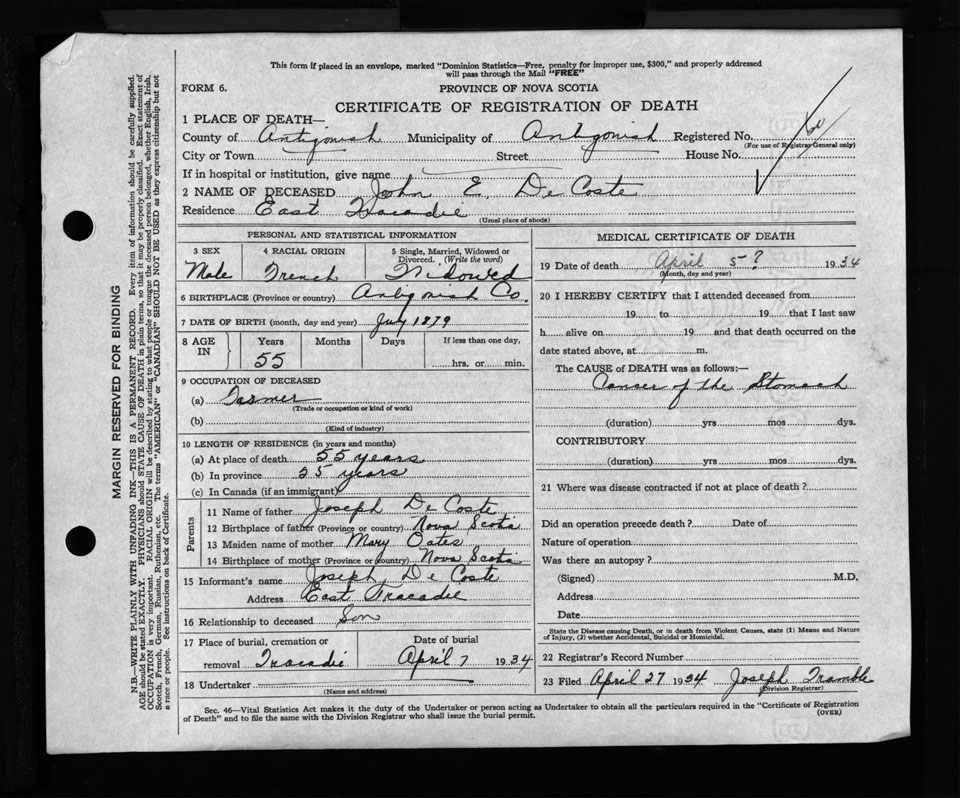 This form if placed in an envelope, marked "Dominion Statistics—Free, penalty for improper use, $300," and properly addressed
will pass through the Mail "FREE"
FORM 6.
PROVINCE OF NOVA SCOTIA
CERTIFICATE OF REGISTRATION OF DEATH
1 PLACE OF DEATH—
County of Antigonish Municipality of Antigonish Registered No.
(For use of Registrar General only)
City or Town Street House No.
If in hospital or institution, give name
2 NAME OF DECEASED John E. De Coste
Residence East Tracadie
(Usual place of abode)
PERSONAL AND STATISTICAL INFORMATION
3 SEX 4 RACIAL ORIGIN 5 Single, Married, Widowed or
Divorced. (Write the word)
Male French Widowed
6 BIRTHPLACE (Province or country) Antigonish Co.
7 DATE OF BIRTH (month, day and year) July 1879
8 AGE IN Years Months Days If less than one day,
55 hrs. or min.
9 OCCUPATION OF DECEASED
(a) Farmer
(Trade or occupation or kind of work)
(b)
(Kind of industry)
10 LENGTH OF RESIDENCE (in years and months)
(a) At place of death 55 years
(b) In province 55 years
(c) In Canada (if an immigrant)
Parents
11 Name of father Joseph De Coste
12 Birthplace of father (Province or country) Nova Scotia
13 Maiden name of mother Mary Oates
14 Birthplace of mother (Province or country) Nova Scotia
15 Informant's name Joseph De Coste
Address East Tracadie
16 Relationship to deceased Son
17 Place of burial, cremation or Date of burial
removal Tracadie April 7 1934
18 Undertaker
(Name and address)
MEDICAL CERTIFICATE OF DEATH
19 Date of death April 5? 1934
(Month, day and year)
20 I HEREBY CERTIFY that I attended deceased from
19 to 19 that I last saw
h alive on 19 and that death occurred on the
date stated above, at m.
The CAUSE of DEATH was as follows:—
Cancer of the Stomach
(duration) yrs mos dys.
CONTRIBUTORY
(duration) yrs mos dys.
21 Where was disease contracted if not at place of death?
Did an operation precede death? Date of
Nature of operation
Was there an autopsy?
(Signed) M.D.
Address
Date
State the Disease causing Death, or in death from Violent Causes, state (1) Means and Nature
of Injury, (2) whether Accidental, Suicidal or Homicidal.
22 Registrar's Record Number
23 Filed April 27 1934 Joseph Tramble
(Division Registrar)
Sec. 46—Vital Statistics Act makes it the duty of the Undertaker or person acting as Undertaker to obtain all the particulars required in the "Certificate of Registration
of Death" and to file the same with the Division Registrar who shall issue the burial permit.
(OVER)
MARGIN RESERVED FOR BINDING
N.B.—WRITE PLAINLY WITH UNFADING INK—THIS IS A PERMANENT RECORD. Every item of information should be carefully supplied.
AGE should be stated EXACTLY. PHYSICIANS should STATE CAUSE OF DEATH in plain terms, so that it may be properly classified. Exact statement of
OCCUPATION is very important. RACIAL ORIGIN will be described by stating to what people or tongue the deceased person belonged, whether English, Irish,
Scotch, French, German, Russian, Ruthenian, etc. The terms "AMERICAN" or "CANADIAN" SHOULD NOT BE USED as they express citizenship but not
a race or people. See instructions on back of Certificate.